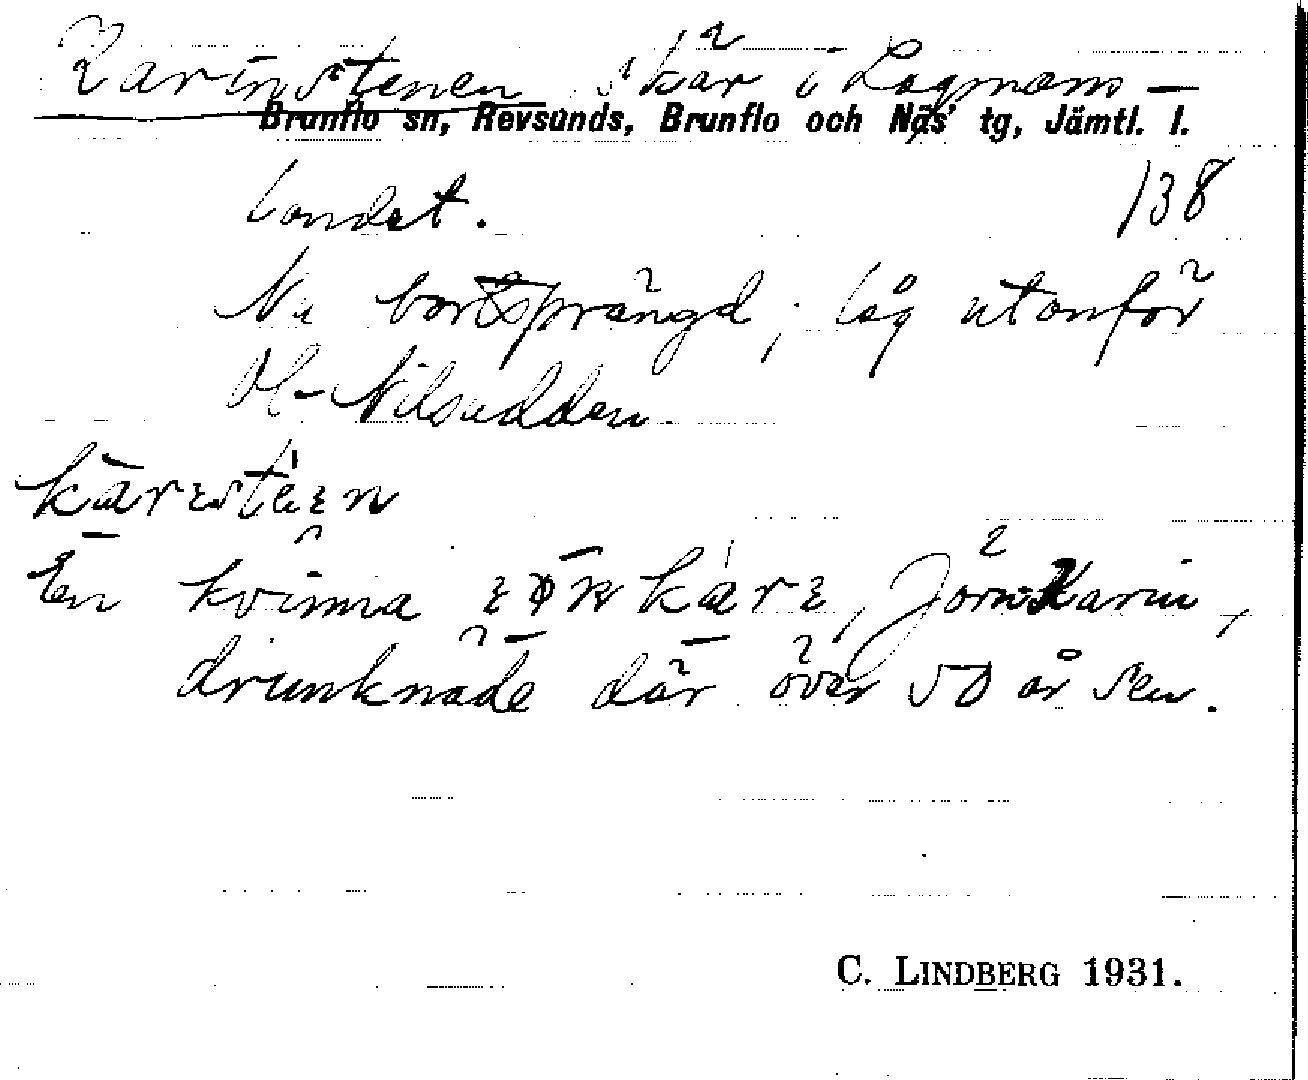 Karinstenen skär i Lagmans-
Brunflo sn, Revsunds, Brunflo och Näs' tg, Jämtl. l.
landet. 138
Nu bortsprängd; låg utanför
Ol-Nilsudden
En kvinna JörnsKarin,
drunknade där över 50 år sen.
C. LINDBERG 1931.